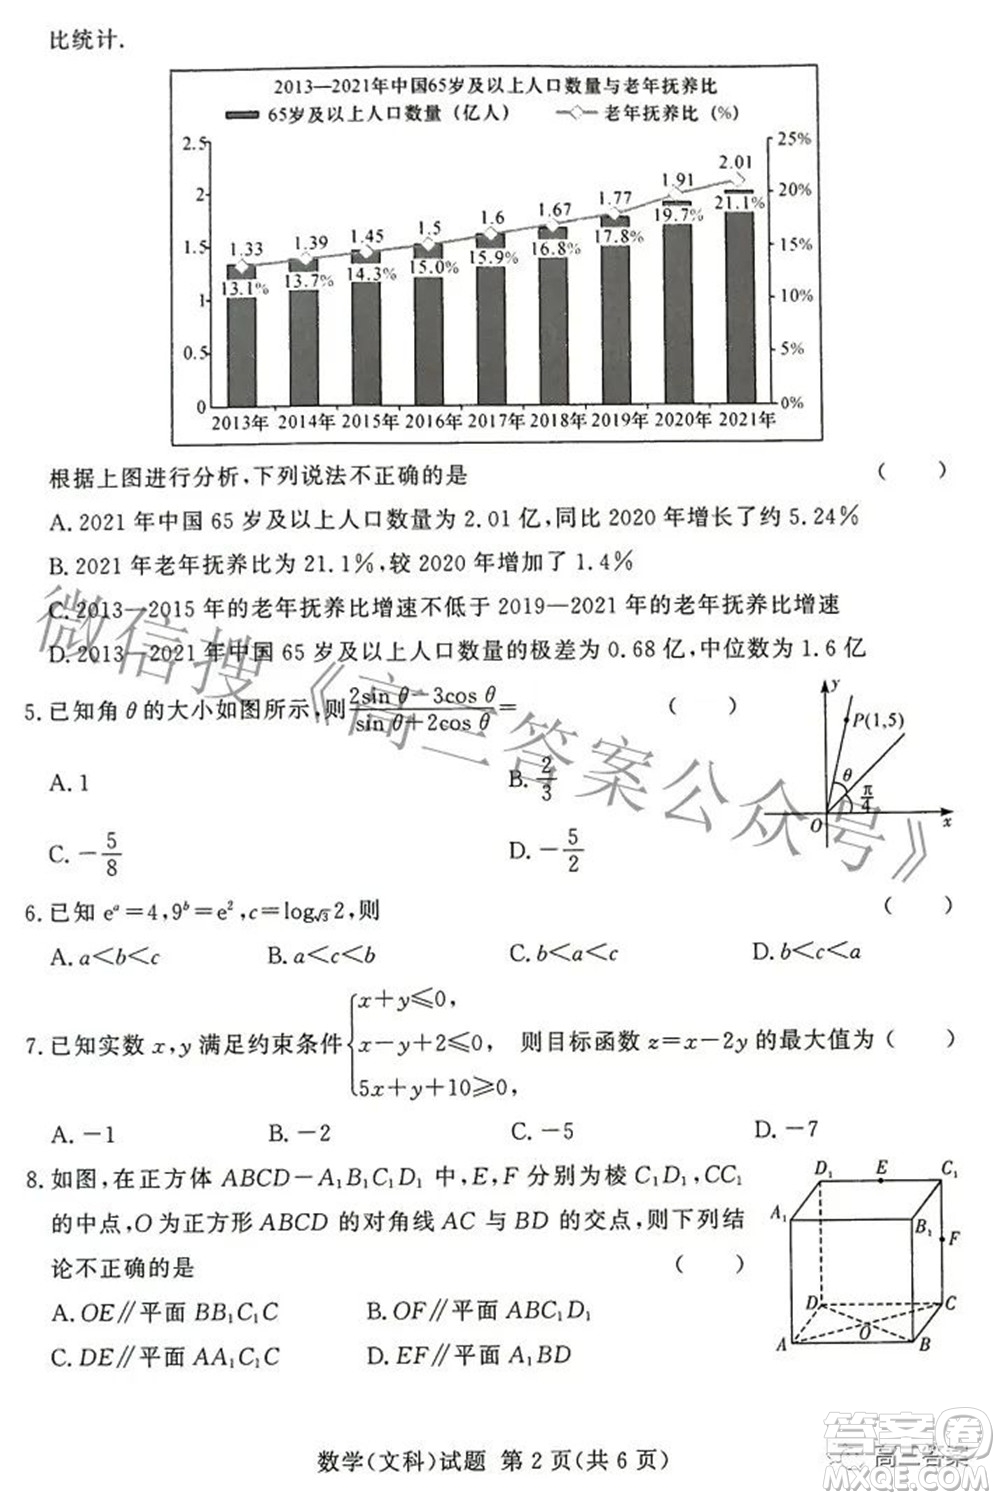 比统计.
2013—2021年中国65岁及以上人口数量与老年抚养比
65岁及以上人口数量（亿人） 老年抚养比（%）
2.5 25%
2 20%
1.5 15%
1 10%
0.5 5%
0 0%
1.33 1.39 1.45 1.5 1.6 1.67 1.77 1.91 2.01
13.1% 13.7% 14.3% 15.0% 15.9% 16.8% 17.8% 19.7% 21.1%
2013年 2014年 2015年 2016年 2017年 2018年 2019年 2020年 2021年
根据上图进行分析,下列说法不正确的是 （ ）
A. 2021 年中国 65 岁及以上人口数量为 2.01 亿,同比 2020 年增长了约 5.24%
B. 2021 年老年抚养比为 21.1%,较 2020 年增加了 1.4%
C. 2013—2015 年的老年抚养比增速不低于 2019—2021 年的老年抚养比增速
D. 2013—2021 年中国 65 岁及以上人口数量的极差为 0.68 亿,中位数为 1.6 亿
5. 已知角 θ 的大小如图所示,则 (2sin θ－3cos θ)/(sin θ－2cos θ)＝ （ ）
A. 1 B. 2/3
C. －5/8 D. －5/2
y P(1,5) θ π/4 O x
6. 已知 eᵃ＝4,9ᵇ＝e²,c＝log√3 2,则 （ ）
A. a＜b＜c B. a＜c＜b C. b＜a＜c D. b＜c＜a
7. 已知实数 x,y 满足约束条件 { x＋y≤0, x－y＋2≤0, 5x＋y＋10≥0, 则目标函数 z＝x－2y 的最大值为（ ）
A. －1 B. －2 C. －5 D. －7
8. 如图,在正方体 ABCD－A₁B₁C₁D₁ 中,E,F 分别为棱 C₁D₁,CC₁
的中点,O 为正方形 ABCD 的对角线 AC 与 BD 的交点,则下列结
论不正确的是 （ ）
A. OE∥平面 BB₁C₁C B. OF∥平面 ABC₁D₁
C. DE∥平面 AA₁C₁C D. EF∥平面 A₁BD
D₁ E C₁
A₁ B₁ F
D C
A O B
数学(文科)试题 第 2 页(共 6 页)
微信搜《高三答案公众号》
高三答案
答案圈
MXQE.COM